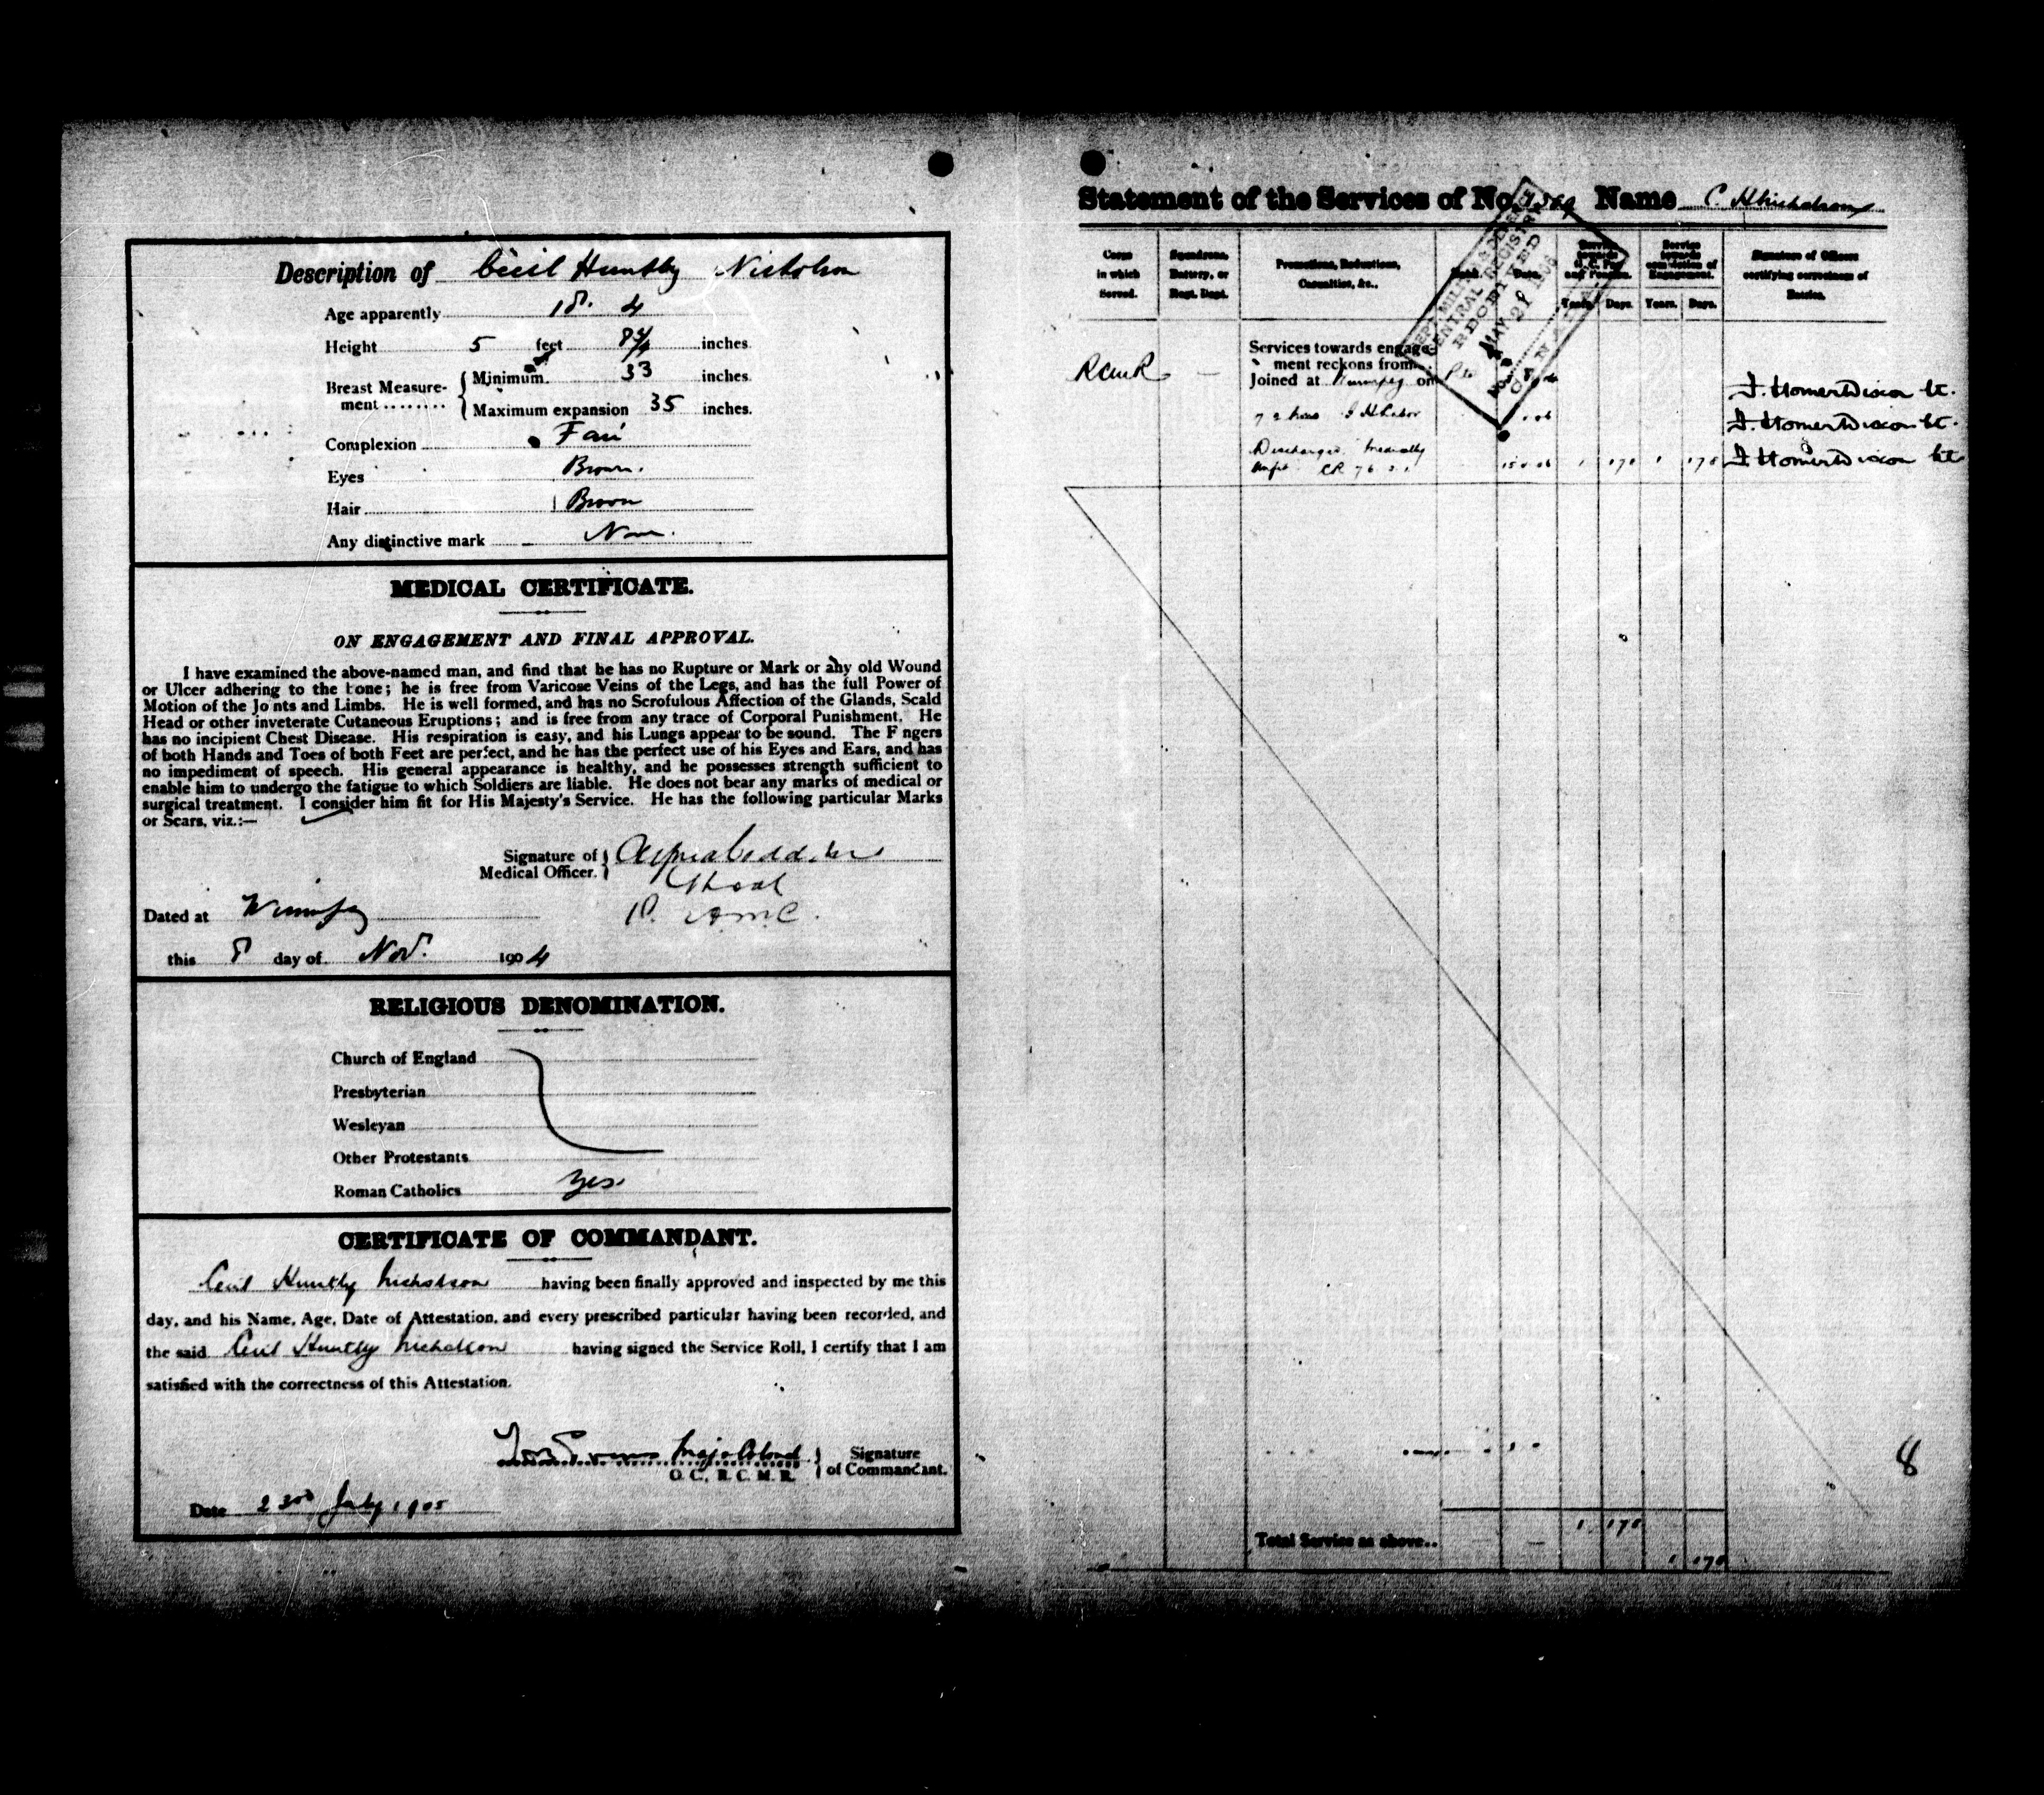 Description of Cecil Huntly Nicholson
Age apparently 18. 4
Height 5 feet 8 3/4 inches.
Breast Measurement ........ { Minimum. 33 inches.
Maximum expansion 35 inches.
Complexion Fair
Eyes Brown.
Hair Brown
Any distinctive mark None.
MEDICAL CERTIFICATE.
ON ENGAGEMENT AND FINAL APPROVAL.
I have examined the above-named man, and find that he has no Rupture or Mark or any old Wound
or Ulcer adhering to the bone; he is free from Varicose Veins of the Legs, and has the full Power of
Motion of the Joints and Limbs. He is well formed, and has no Scrofulous Affection of the Glands, Scald
Head or other inveterate Cutaneous Eruptions; and is free from any trace of Corporal Punishment. He
has no incipient Chest Disease. His respiration is easy, and his Lungs appear to be sound. The Fingers
of both Hands and Toes of both Feet are perfect, and he has the perfect use of his Eyes and Ears, and has
no impediment of speech. His general appearance is healthy, and he possesses strength sufficient to
enable him to undergo the fatigue to which Soldiers are liable. He does not bear any marks of medical or
surgical treatment. I consider him fit for His Majesty's Service. He has the following particular Marks
or Scars, viz.:—
Signature of
Medical Officer. }
P. A.M.C.
Dated at Winnipeg
this 8 day of Nov. 1904
RELIGIOUS DENOMINATION.
Church of England
Presbyterian
Wesleyan
Other Protestants
Roman Catholics Yes
CERTIFICATE OF COMMANDANT.
Cecil Huntly Nicholson having been finally approved and inspected by me this
day, and his Name, Age, Date of Attestation, and every prescribed particular having been recorded, and
the said Cecil Huntly Nicholson having signed the Service Roll, I certify that I am
satisfied with the correctness of this Attestation.
Evans Major Colonel } Signature
O. C., R. C. M. R. of Commandant.
Date 23rd July 1905
Statement of the Services of No. Name C. H Nicholson
Corps in which Served.
Squadron, Battery, or Regt. Dept.
Promotions, Reductions, Casualties, &c.,
Rank.
Date.
Service towards G. C. Pay and Pension.
Service towards completion of Engagement.
Signature of Officers certifying correctness of Entries.
Years. Days. Years. Days.
DEPT. MILITIA & DEFENCE
CENTRAL REGISTRY
RECEIVED
MAY 21 1906
No.
CANADA
Services towards engage-
ment reckons from
RCMR — Joined at Winnipeg on Pte F. Homer Dixon Lt.
72 hrs I H Labor F. Homer Dixon Lt.
Discharged Medically
unfit CR 76 1 170 1 170 F. Homer Dixon Lt
8
Total Service as above.. 1 170
1 170